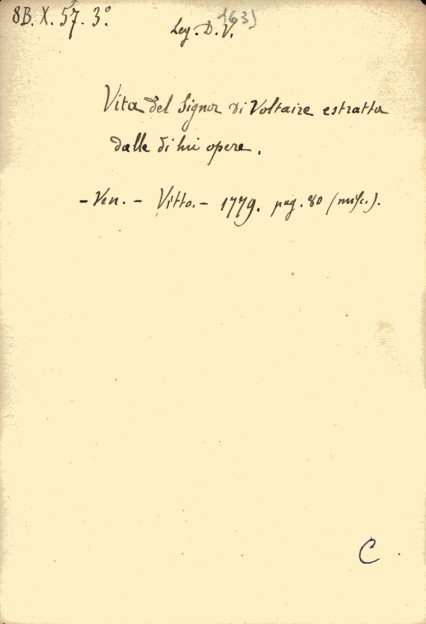 8B. X. 57. 3º
Leg. D. V.
Vita del Signor di Voltaire estratta
dalle di lui opere.
- Ven. - Vitto. - 1779. pag. 80 (misc.).
C